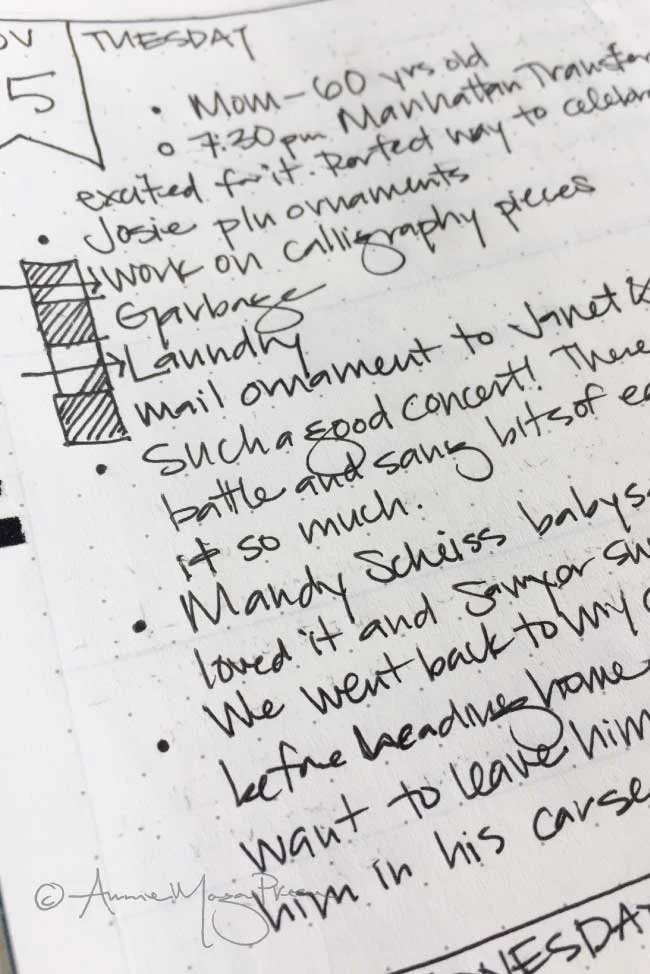 OV
5
TUESDAY
• Mom - 60 yrs old
○ 7:30pm Manhattan Transfer
excited for it. Parfect way to celebra
• Josie plu ornaments
work on calligraphy pieces
Garbage
Laundry
mail ornament to Janet &
• Such a good concert! There
battle and sang bits of ea
it so much.
• Mandy Scheiss babys
loved it and Sawyer sw
• We went back to my
before heading home
want to leave him
him in his carse
© Annie
NESDAY